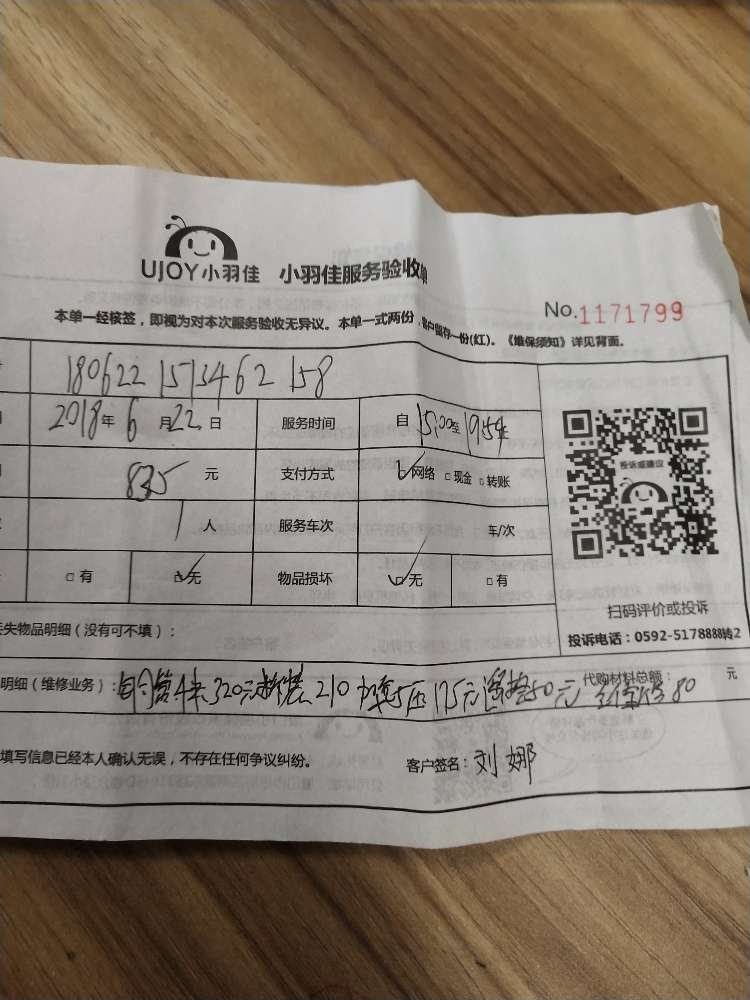 UJOY小羽佳 小羽佳服务验收单
No.1171799
本单一经核签，即视为对本次服务验收无异议。本单一式两份，客户留存一份(红)。《维保须知》详见背面。
180622 1515462 158
2018年6月22日 服务时间 自15:00至19:54止
835元 支付方式 ☑网络 □现金 □转账
1人 服务车次 车/次
□有 ☑无 物品损坏 ☑无 □有
投诉或建议
扫码评价或投诉
投诉电话：0592-5178888转2
失物品明细（没有可不填）：
代购材料总额： 元
明细（维修业务）：铜管4米320元 210 加 5压175元 50元 80
填写信息已经本人确认无误，不存在任何争议纠纷。 客户签名：刘娜